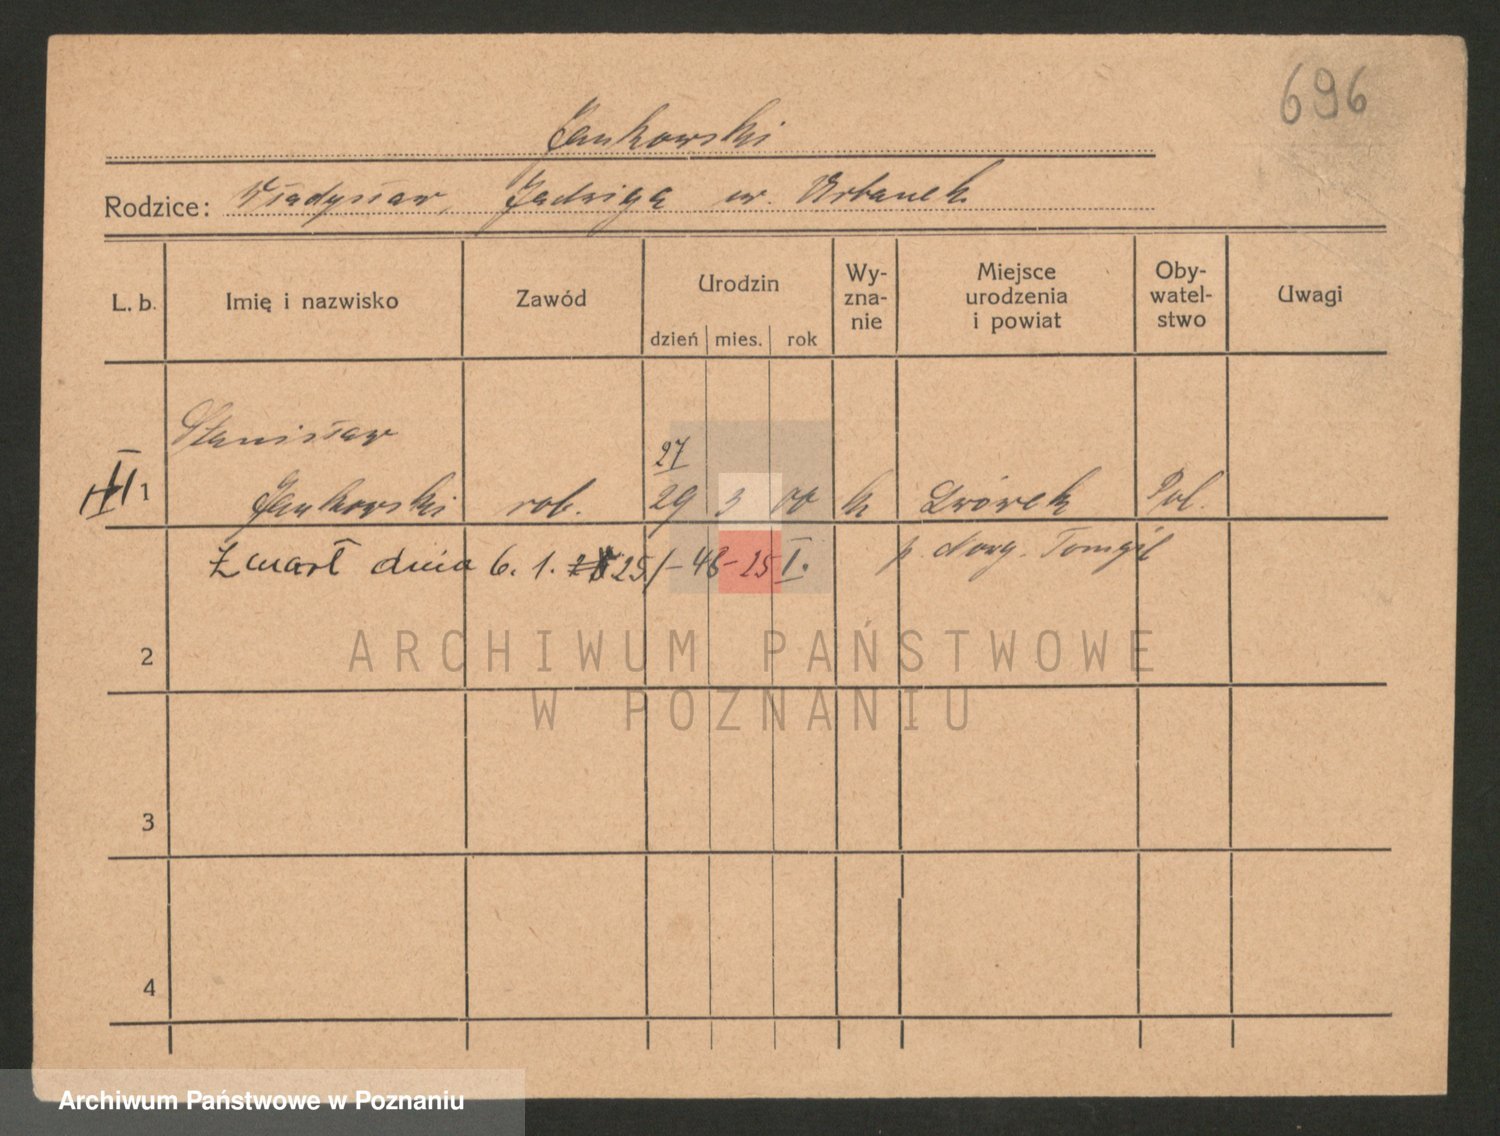 696
Jankowski
Rodzice: Władysław, Jadwiga ur. Urbanek
L. b. Imię i nazwisko Zawód Urodzin dzień mies. rok Wy-zna-nie Miejsce urodzenia i powiat Oby-watel-stwo Uwagi
Stanisław
27
1 Jankowski rob. 29 3 00 k Lwówek Pol.
Zmarł dnia 6. 1. 25 /- 48 - 25 I. p. Nowy-Tomyśl
2
ARCHIWUM PAŃSTWOWE
W POZNANIU
3
4
Archiwum Państwowe w Poznaniu